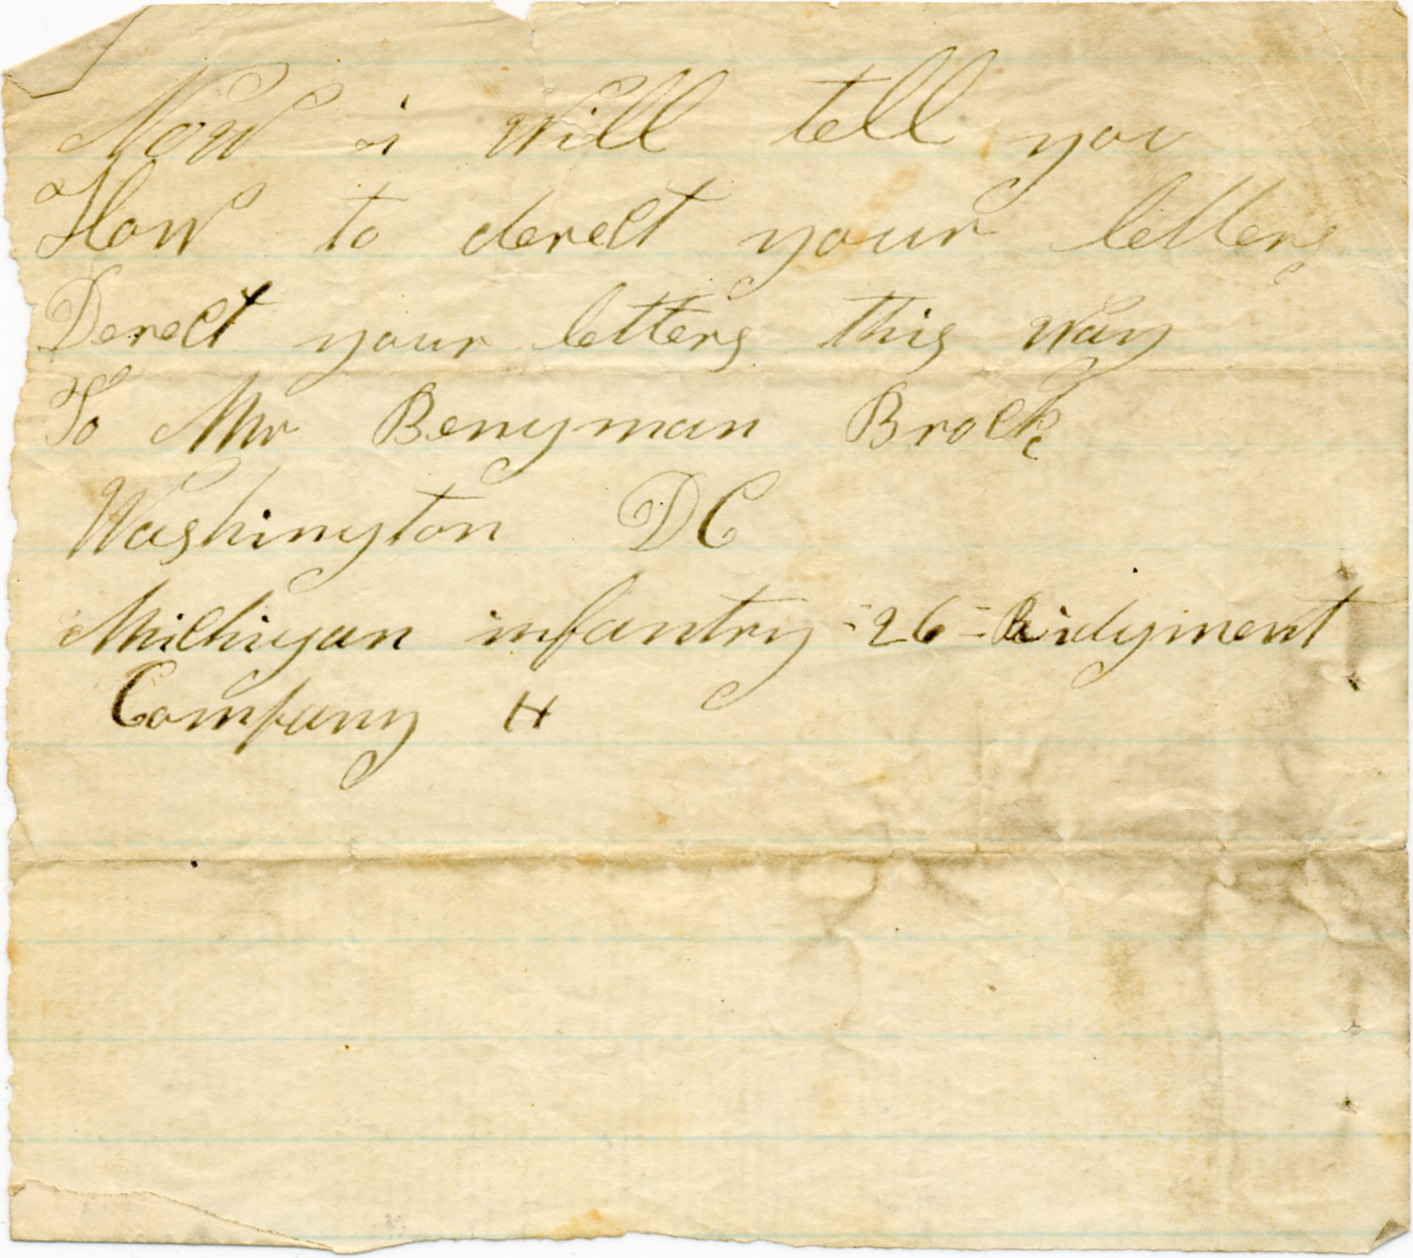 Now i will tell you
How to derect your letters
Derect your letters this way
To Mr Benyman Brock
Washington DC
Michigan infantry = 26 = Ridgment
Company H